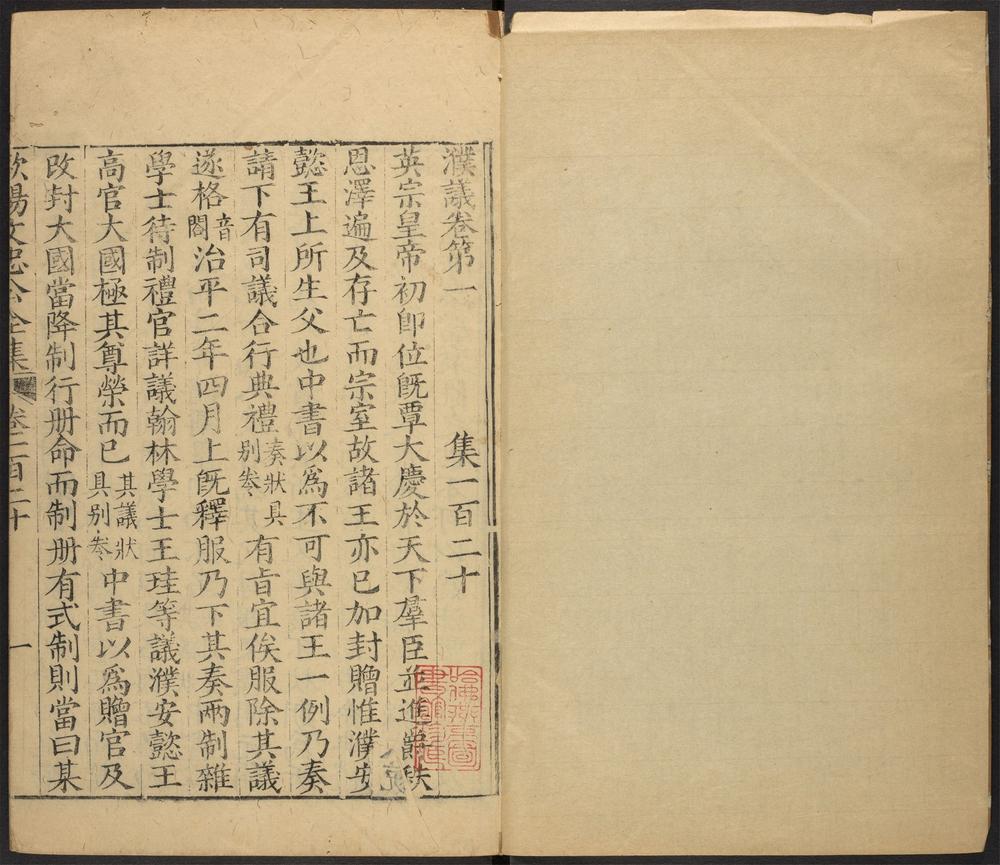 濮議卷第一　　　集一百二十
英宗皇帝初即位既覃大慶於天下羣臣並進爵秩
恩澤遍及存亡而宗室故諸王亦已加封贈惟濮安
懿王上所生父也中書以爲不可與諸王一例乃奏
請下有司議合行典禮奏狀具别卷有旨宜俟服除其議
遂格音閣治平二年四月上既釋服乃下其奏兩制雜
學士待制禮官詳議翰林學士王珪等議濮安懿王
高官大國極其尊榮而已其議狀具别卷中書以爲贈官及
改封大國當降制行册命而制册有式制則當曰某
歐陽文忠公全集　卷一百二十　一